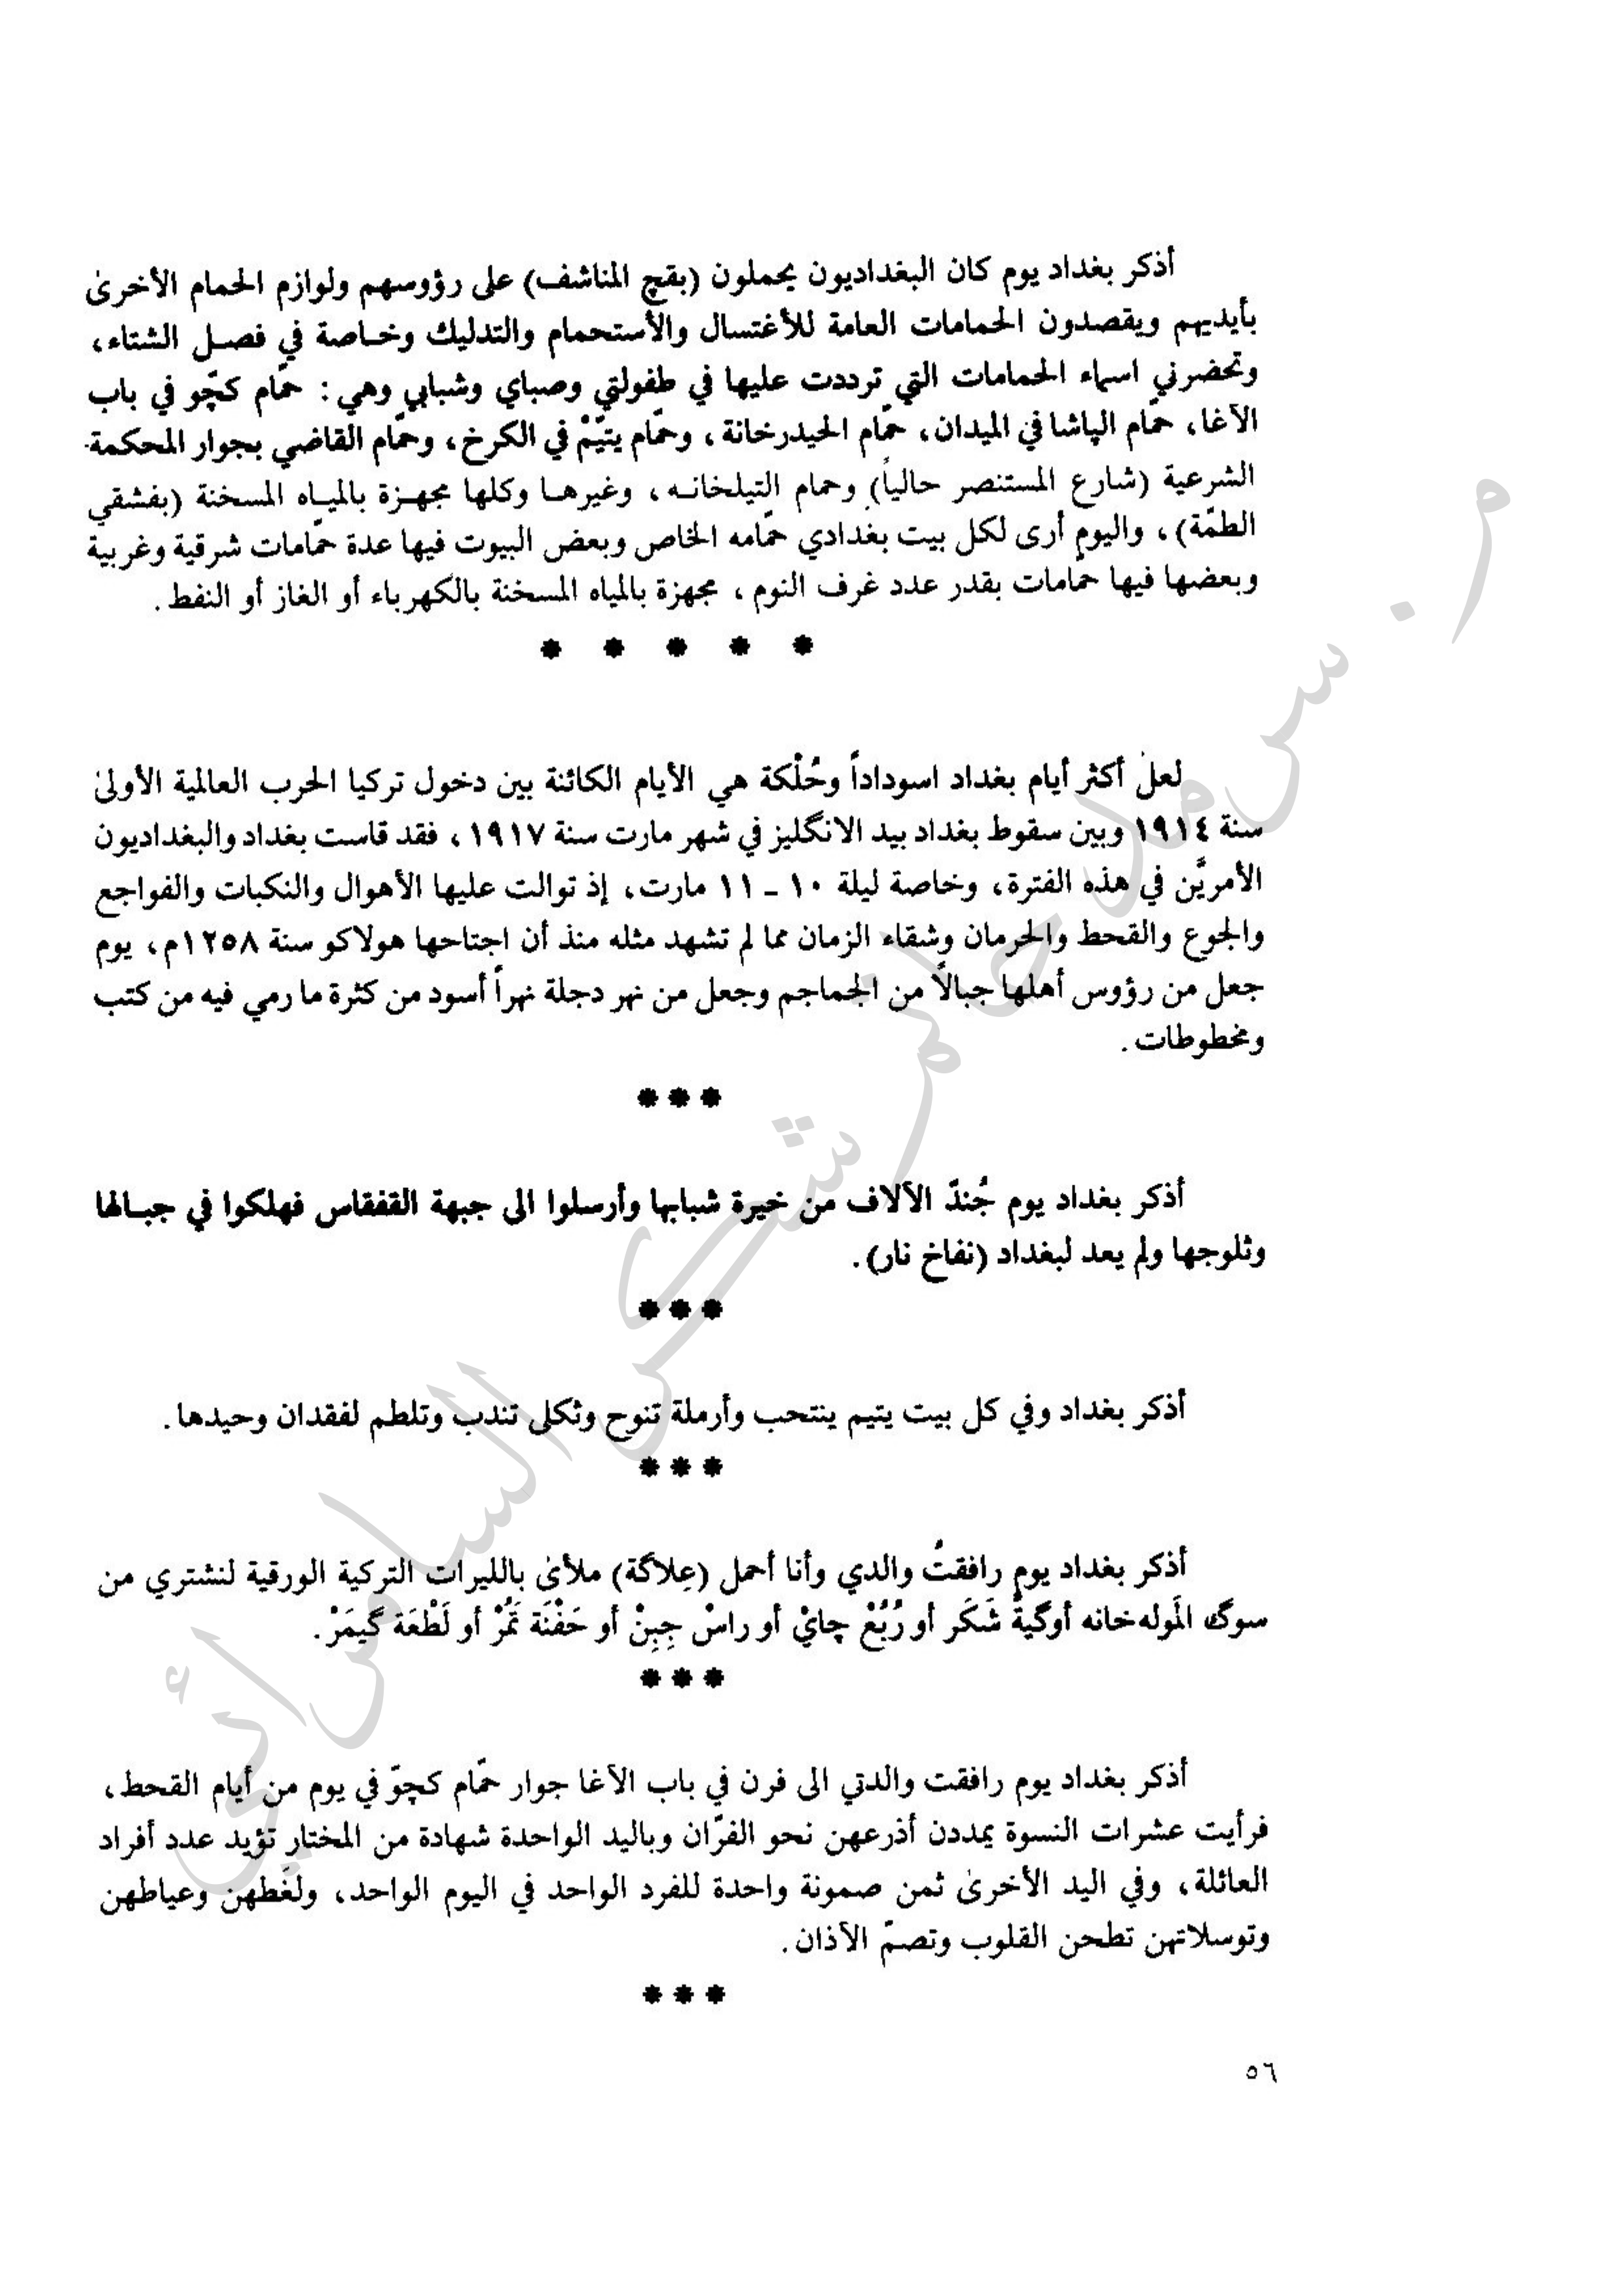 أذكر بغداد يوم كان البغداديون يحملون (بقچ المناشف) على رؤوسهم ولوازم الحمام الأخرىٰ
بأيديهم ويقصدون الحمامات العامة للأغتسال والأستحمام والتدليك وخاصة في فصل الشتاء،
وتحضرني اسماء الحمامات التي ترددت عليها في طفولتي وصباي وشبابي وهي: حمّام كچّو في باب
الآغا، حمّام الپاشا في الميدان، حمّام الحيدرخانة، وحمّام يتيّمْ في الكرخ، وحمّام القاضي بجوار المحكمة
الشرعية (شارع المستنصر حالياً) وحمام التيلخانه، وغيرها وكلها مجهزة بالمياه المسخنة (بفشقي
الطمّة)، واليوم أرى لكل بيت بغدادي حمّامه الخاص وبعض البيوت فيها عدة حمّامات شرقية وغربية
وبعضها فيها حمّامات بقدر عدد غرف النوم، مجهزة بالمياه المسخنة بالكهرباء أو الغاز أو النفط.
* * * * *
لعل أكثر أيام بغداد اسوداداً وحُلْكة هي الأيام الكائنة بين دخول تركيا الحرب العالمية الأولىٰ
سنة ١٩١٤ وبين سقوط بغداد بيد الانگليز في شهر مارت سنة ١٩١٧، فقد قاست بغداد والبغداديون
الأمريَّن في هذه الفترة، وخاصة ليلة ١٠ - ١١ مارت، إذ توالت عليها الأهوال والنكبات والفواجع
والجوع والقحط والحرمان وشقاء الزمان مما لم تشهد مثله منذ أن اجتاحها هولاكو سنة ١٢٥٨م، يوم
جعل من رؤوس أهلها جبالاً من الجماجم وجعل من نهر دجلة نهراً أسود من كثرة ما رمي فيه من كتب
ومخطوطات.
***
أذكر بغداد يوم جُندّ الآلاف من خيرة شبابها وأرسلوا الى جبهة القفقاس فهلكوا في جبالها
وثلوجها ولم يعد لبغداد (نفاخ نار).
***
أذكر بغداد وفي كل بيت يتيم ينتحب وأرملة تنوح وثكلى تندب وتلطم لفقدان وحيدها.
***
أذكر بغداد يوم رافقتُ والدي وأنا أحمل (عِلاگة) ملأىٰ بالليرات التركية الورقية لنشتري من
سوگ المَوله خانه أوگيةْ شَكَر أو رُبُعْ چايْ أو راسْ جِبِنْ أو حَفْنَة تَمُرْ أو لَطْعَة گيمَرْ.
***
أذكر بغداد يوم رافقت والدتي الى فرن في باب الآغا جوار حمّام كچوّ في يوم من أيام القحط،
فرأيت عشرات النسوة يمددن أذرعهن نحو الفرّان وباليد الواحدة شهادة من المختار تؤيد عدد أفراد
العائلة، وفي اليد الأخرىٰ ثمن صمونة واحدة للفرد الواحد في اليوم الواحد، ولغَطهن وعياطهن
وتوسلاتهن تطحن القلوب وتصمّ الآذان.
***
٥٦
م. سرمد حاتم شكر السامرائي